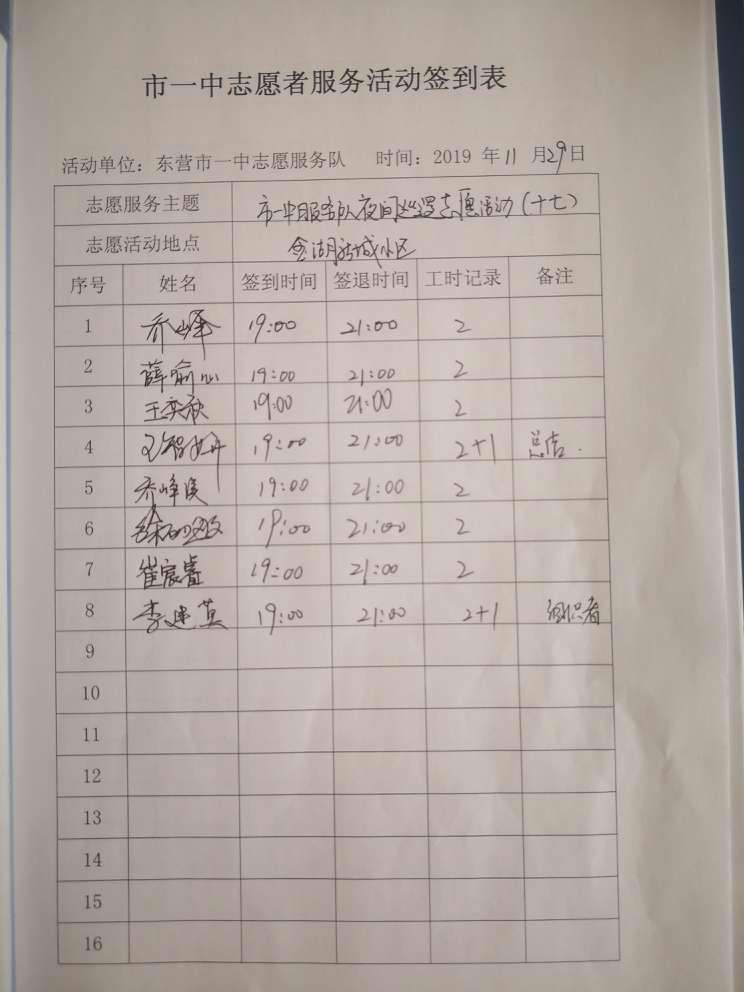 市一中志愿者服务活动签到表
活动单位：东营市一中志愿服务队 时间：2019 年 11 月 29 日
志愿服务主题 市一中服务队夜间巡逻志愿活动（十七）
志愿活动地点 金湖新城小区
序号 姓名 签到时间 签退时间 工时记录 备注
1 乔峰 19:00 21:00 2
2 薛喻心 19:00 21:00 2
3 王奕秋 19:00 21:00 2
4 19:00 21:00 2+1 总结.
5 乔峰 19:00 21:00 2
6 19:00 21:00 2
7 崔宸睿 19:00 21:00 2
8 李建英 19:00 21:00 2+1 组织者
9
10
11
12
13
14
15
16